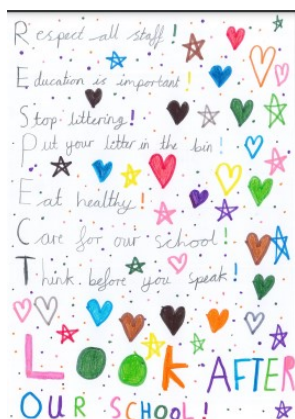 Respect all staff!
Education is important!
Stop littering!
Put your litter in the bin!
Eat healthy!
Care for our school!
Think before you speak!
LOOK AFTER
OUR SCHOOL!